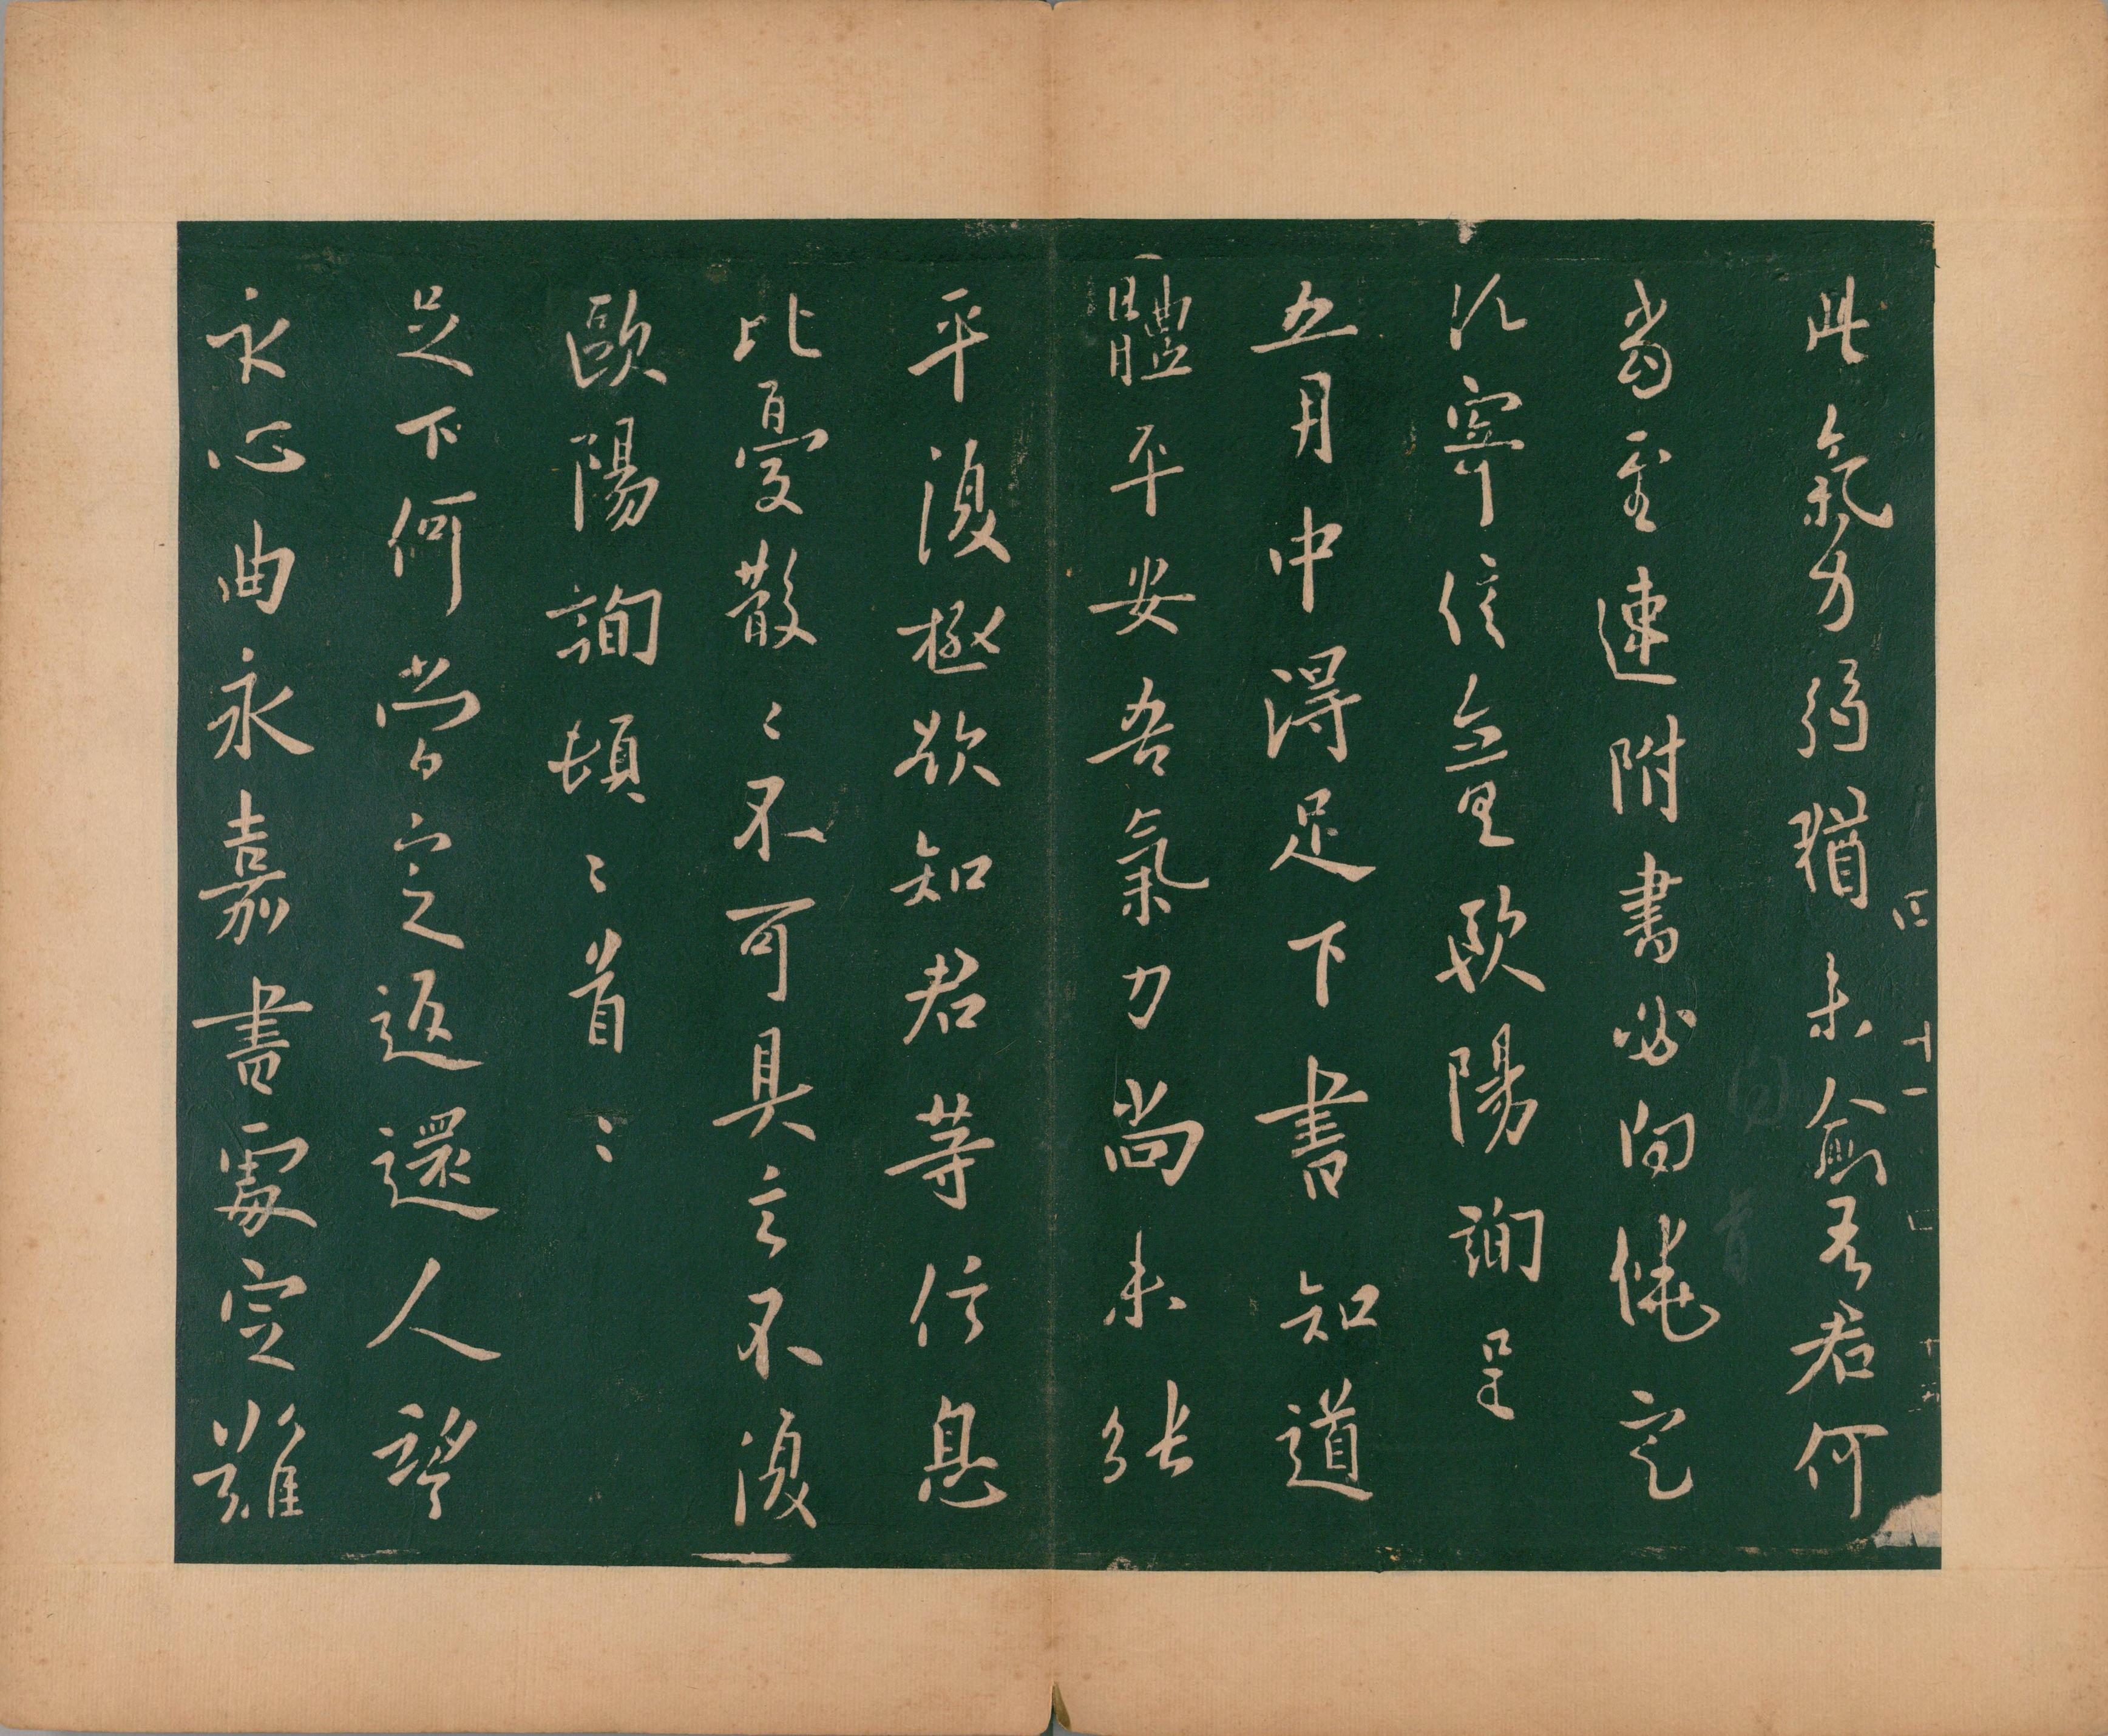 此氣力弱猶未愈吾君何
當至速附書必向定
寧信無歐陽詢呈
五月中得足下書知道
體平安吾氣力尚未能
平復極欲知君等信息
比憂散〻不可具言不復
歐陽詢頓〻首〻
足下何當定返還人望
心曲永嘉書處定難